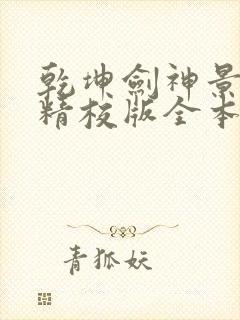 乾坤劍神景
精校版全本
青狐妖